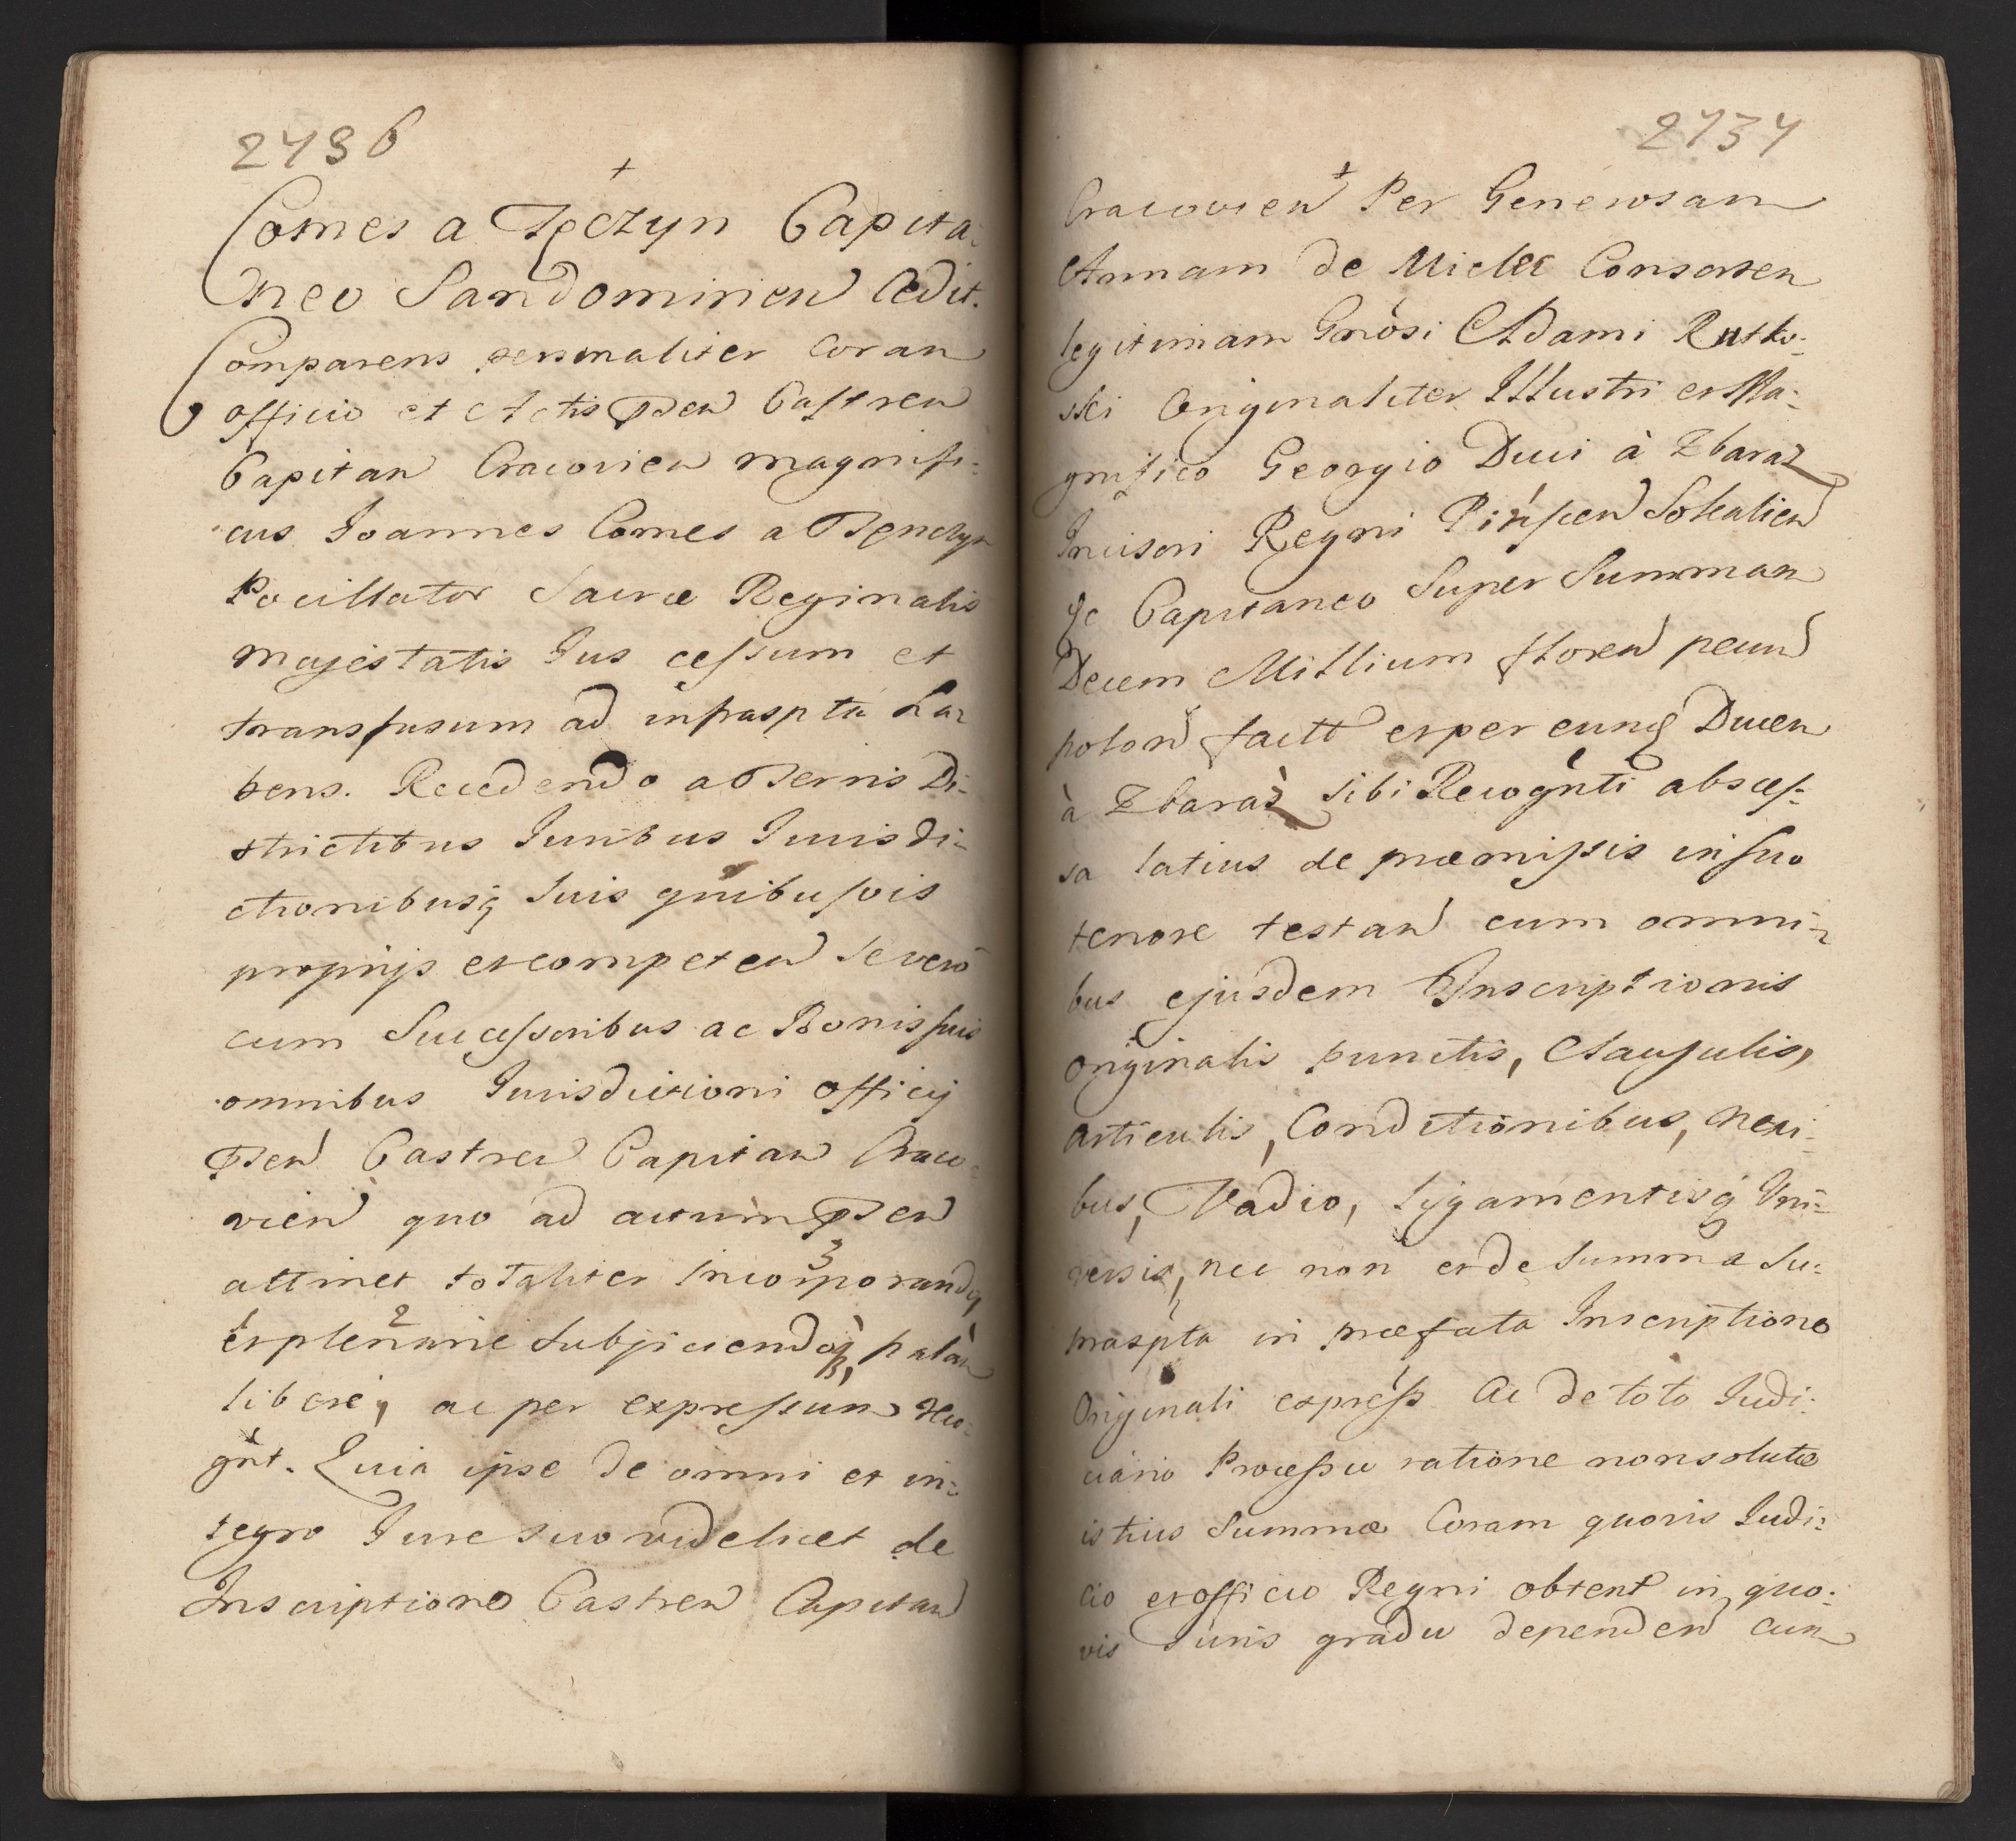 2736
+
Comes a Tęczyn Capita-
neo Sandomirien Cedit.
Comparens personaliter coram
officio et Actis Pnen Castren
Capitan Cracovien magnifi-
cus Joannes Comes a Tęnczyn
Pocillator Sacræ Reginalis
Majestatis Jus cessum et
transfusum ad infraspta ha-
bens. Recedendo a Terris Di-
strictibus Juribus Jurisdi-
ctionibusq suis quibusvis
proprijs et competen se vero
cum Successoribus ac Bonis suis
omnibus Jurisdictioni officij
Pnen Castren Capitan Craco-
vien quo ad actum Pnen
attinet totaliter Incorporandq
et plenarie subjiciendoq, palam
libere, ac per expressum reco-
gnt. Quia ipse de omni et in-
tegro Jure suo videlicet de
Inscriptione Castren Capitan
2737
+
Cracovien Per Generosam
Annam de Mielec Consorten
legitimam Gnosi Adami Rutko-
ski Originaliter Illustri et Ma-
gnifico Georgio Duci à Zbaraz
Incisori Regni Pinscen Sokalien
Ac Capitaneo Super Summam
Decem Millium floren pecun
polon factt et per eunq Ducen
à Zbaraz sibi Recognti abscес-
sa latius de præmissis in suo
tenore testan cum omni-
bus ejusdem Inscriptionis
originalis punctis, Clausulis,
articulis, Conditionibus, nexi-
bus, Vadio, Ligamentisq Uni-
versis, nec non et de Summa Su-
praspta in præfata Inscriptione
Originali express Ac de toto Judi-
ciario Processu ratione non solutæ
istius Summæ Coram quovis Judi-
cio et officio Regni obtent in quo-
vis Juris gradu dependen cum